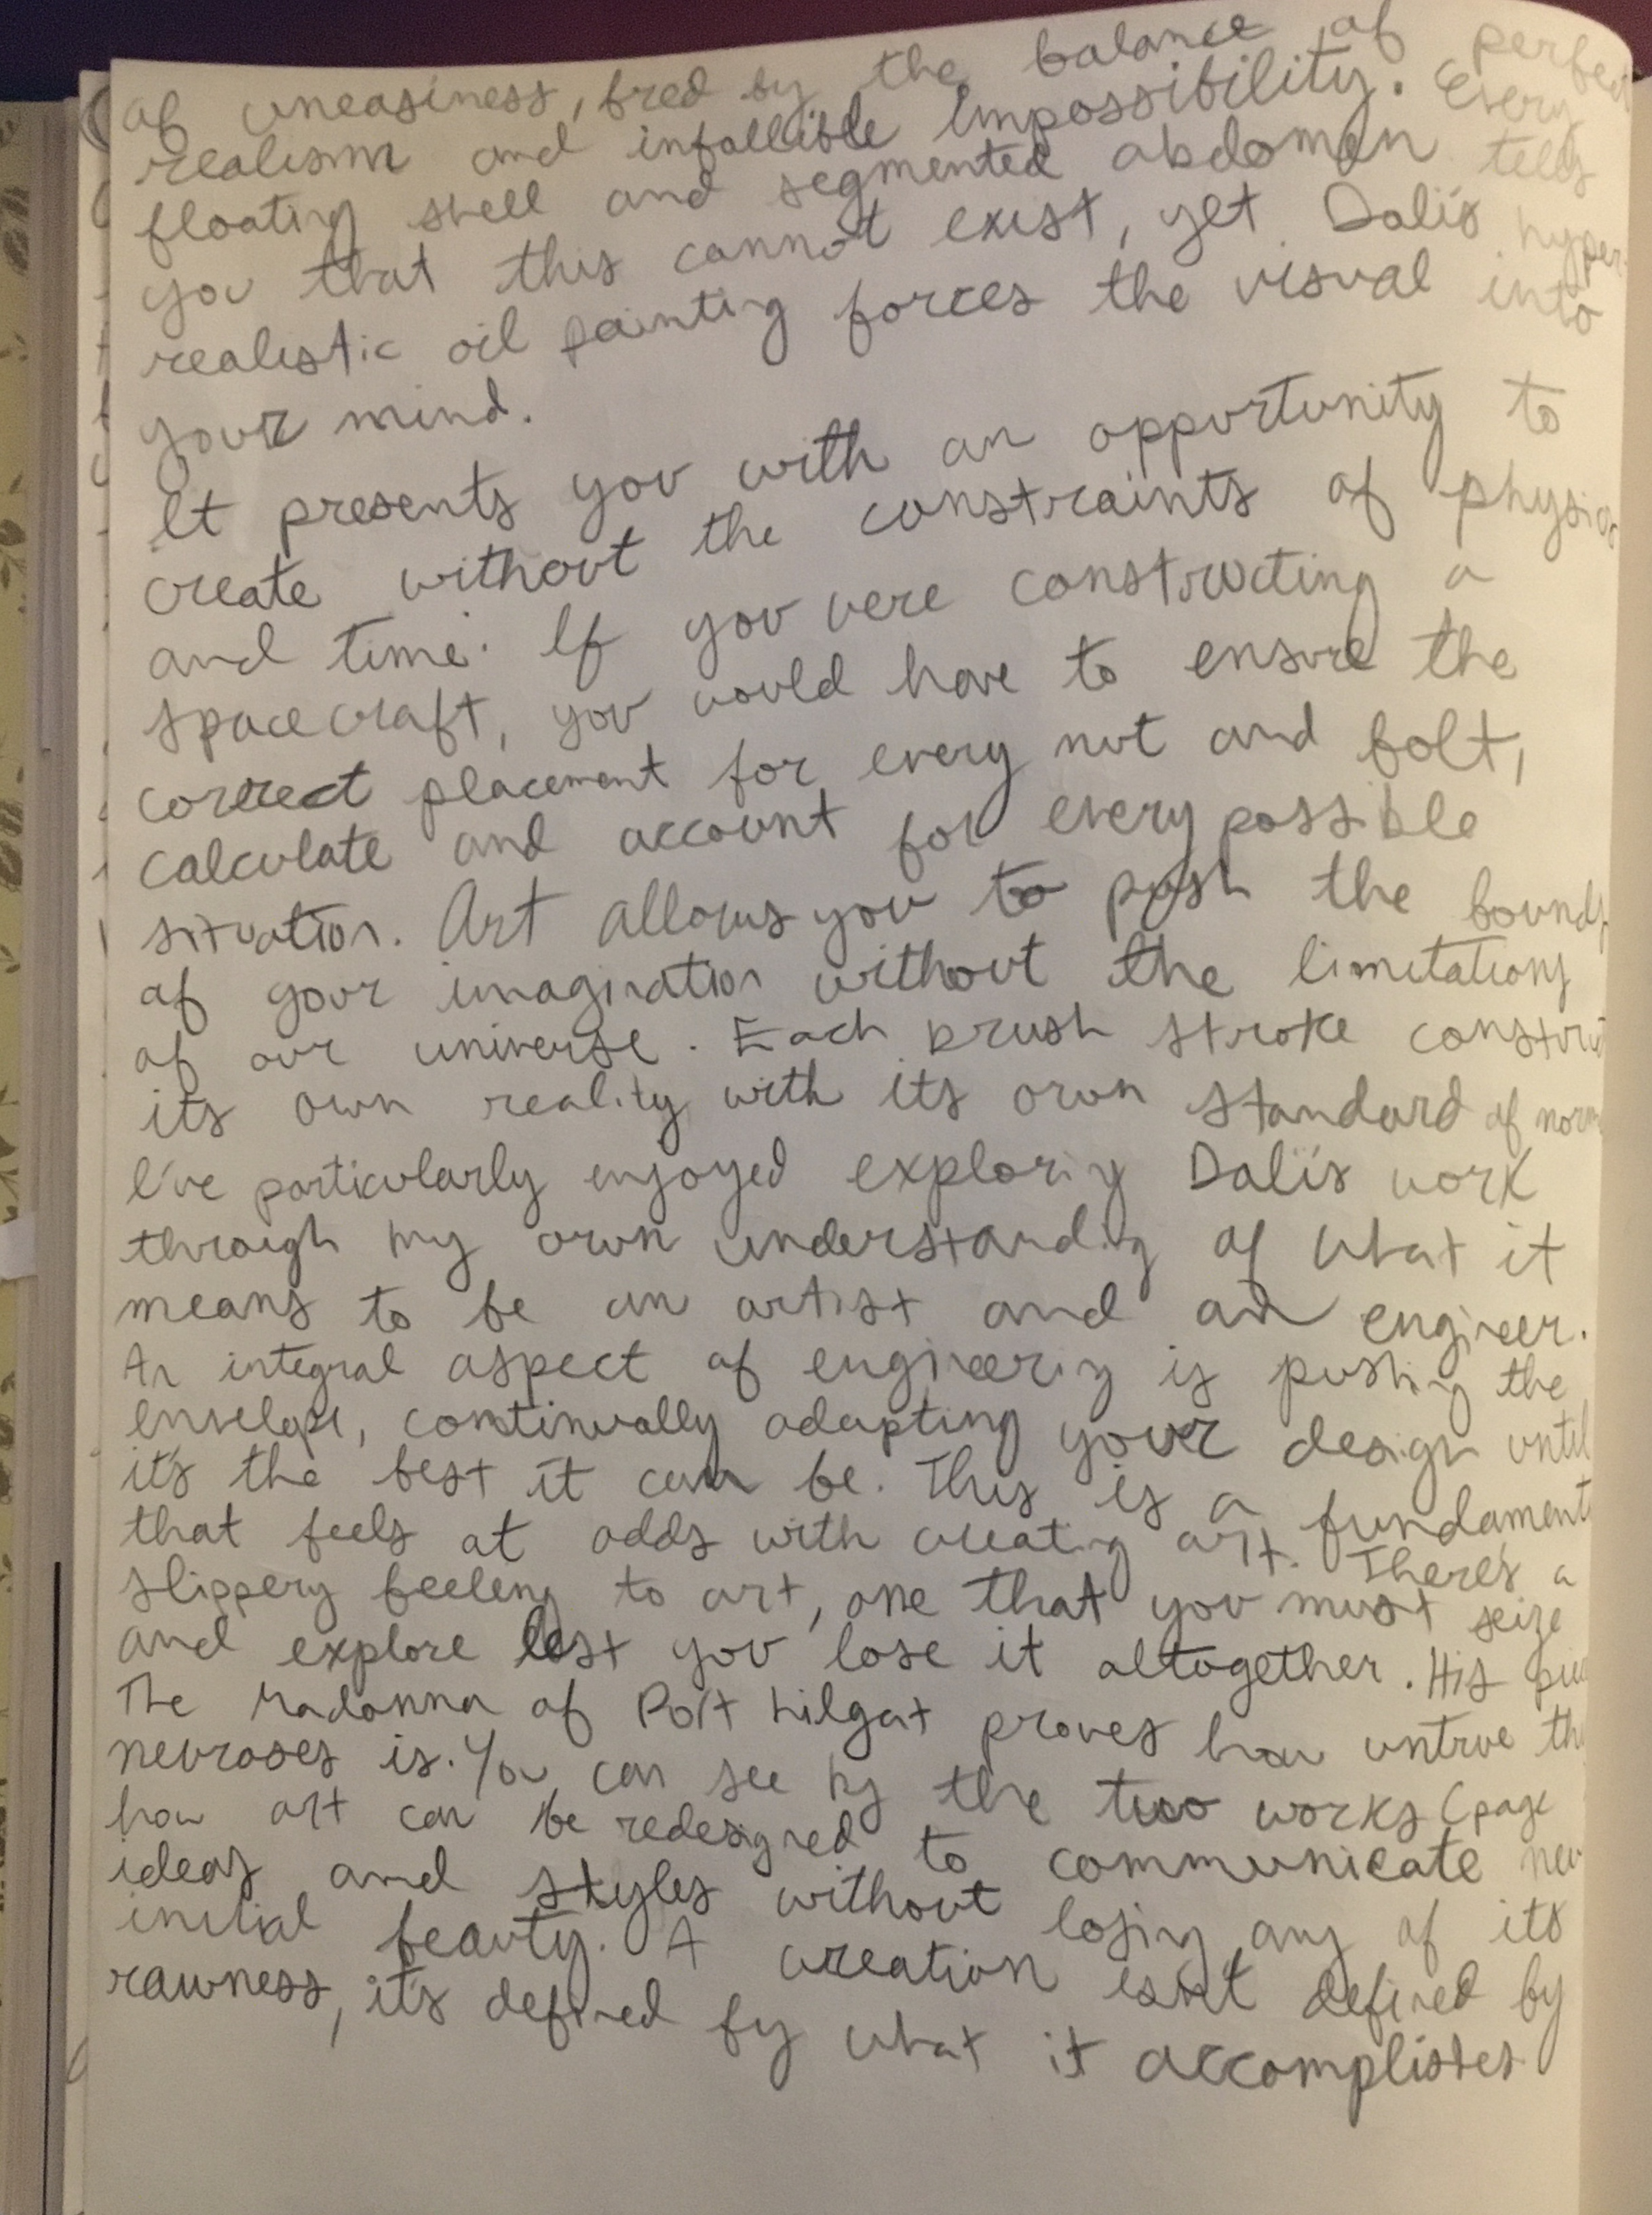 of uneasiness, bred by the balance of perfec
realism and infallible impossibility. Every
floating shell and segmented abdomen tells
you that this cannot exist, yet Dalí's hyper-
realistic oil painting forces the visual into
your mind.
It presents you with an opportunity to
create without the constraints of physics
and time. If you were constructing a
spacecraft, you would have to ensure the
correct placement for every nut and bolt,
calculate and account for every possible
situation. Art allows you to push the bounds
of your imagination without the limitations
of our universe. Each brush stroke constru
its own reality with its own standard of norm
I've particularly enjoyed exploring Dalí's work
through my own understanding of what it
means to be an artist and an engineer.
An integral aspect of engineering is pushing the
envelope, continually adapting your design until
it's the best it can be. This is a fundament
that feels at odds with creating art. There's a
slippery feeling to art, one that you must seize
and explore lest you lose it altogether. His pie
The Madonna of Port Lligat proves how untrue th
neuroses is. You can see by the two works (page
how art can be redesigned to communicate new
ideas and styles without losing any of its
initial beauty. A creation isn't defined by
rawness, it's defined by what it accomplishes